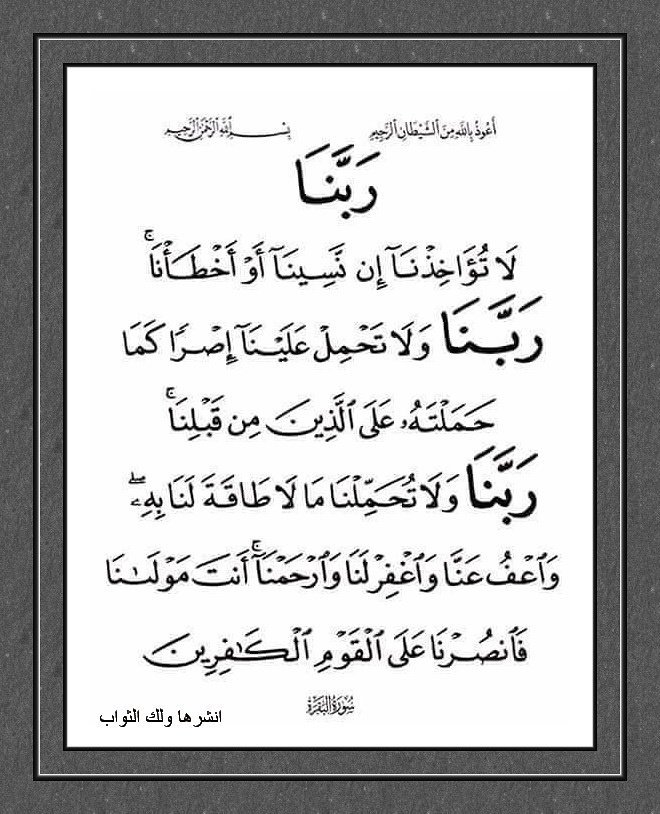 أَعُوذُ بِاللَّهِ مِنَ ٱلشَّيْطَانِ ٱلرَّجِيمِ بِسْمِ ٱللَّهِ ٱلرَّحْمَٰنِ ٱلرَّحِيمِ
رَبَّنَا
لَا تُؤَاخِذْنَآ إِن نَّسِينَآ أَوْ أَخْطَأْنَا ۚ
رَبَّنَا وَلَا تَحْمِلْ عَلَيْنَآ إِصْرًا كَمَا
حَمَلْتَهُۥ عَلَى ٱلَّذِينَ مِن قَبْلِنَا ۚ
رَبَّنَا وَلَا تُحَمِّلْنَا مَا لَا طَاقَةَ لَنَا بِهِۦ ۖ
وَٱعْفُ عَنَّا وَٱغْفِرْ لَنَا وَٱرْحَمْنَآ ۚ أَنتَ مَوْلَىٰنَا
فَٱنصُرْنَا عَلَى ٱلْقَوْمِ ٱلْكَٰفِرِينَ
سُورَةُ الْبَقَرَةِ
انشرها ولك الثواب